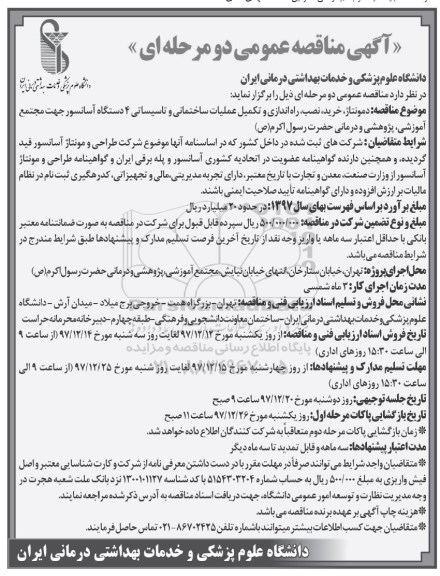 « آگهی مناقصه عمومی دو مرحله ای »
دانشگاه علوم پزشکی و خدمات بهداشتی درمانی ایران
در نظر دارد مناقصه عمومی دو مرحله ای ذیل را برگزار نماید:
موضوع مناقصه: دمونتاژ، خرید، نصب، راه اندازی و تکمیل عملیات ساختمانی و تاسیساتی ۴ دستگاه آسانسور جهت مجتمع
آموزشی، پژوهشی و درمانی حضرت رسول اکرم(ص)
شرایط متقاضیان: شرکت های ثبت شده در داخل کشور که در اساسنامه آنها موضوع شرکت طراحی و مونتاژ آسانسور قید
گردیده، و همچنین دارنده گواهینامه عضویت در اتحادیه کشوری آسانسور و پله برقی ایران و گواهینامه طراحی و مونتاژ
آسانسور از وزارت صنعت، معدن و تجارت با تاریخ معتبر، دارای تجربه مدیریتی، مالی و تجهیزاتی، کدرهگیری ثبت نام در نظام
مالیات بر ارزش افزوده و دارای گواهینامه تأیید صلاحیت ایمنی باشند.
مبلغ برآورد براساس فهرست بهای سال ۱۳۹۷: در حدود ۲۰ میلیارد ریال
مبلغ و نوع تضمین شرکت در مناقصه: ۵۰۰/۰۰۰/۰۰۰ ریال سپرده قابل قبول برای شرکت در مناقصه به صورت ضمانتنامه معتبر
بانکی با حداقل اعتبار سه ماهه یا واریز وجه نقد از تاریخ آخرین فرصت تسلیم مدارک و پیشنهادها طبق شرایط مندرج در
شرایط مناقصه می باشد.
محل اجرای پروژه: تهران، خیابان ستارخان، انتهای خیابان نیایش، مجتمع آموزشی، پژوهشی و درمانی حضرت رسول اکرم(ص)
مدت زمان اجرای کار: ۳ ماه شمسی
نشانی محل فروش و تسلیم اسناد ارزیابی فنی و مناقصه: تهران - بزرگراه همت - خروجی برج میلاد - میدان آرش - دانشگاه
علوم پزشکی و خدمات بهداشتی درمانی ایران - ساختمان معاونت دانشجویی و فرهنگی - طبقه چهارم - دبیرخانه محرمانه حراست
تاریخ فروش اسناد ارزیابی فنی و مناقصه: از روز یکشنبه مورخ ۹۷/۱۲/۱۲ لغایت روز سه شنبه مورخ ۹۷/۱۲/۱۴ (از ساعت ۹
الی ساعت ۱۵:۳۰ روزهای اداری)
مهلت تسلیم مدارک و پیشنهادها: از روز چهارشنبه مورخ ۹۷/۱۲/۱۵ لغایت روز شنبه مورخ ۹۷/۱۲/۲۵ (از ساعت ۹ الی
ساعت ۱۵:۳۰ روزهای اداری)
تاریخ جلسه توجیهی: روز دوشنبه مورخ ۹۷/۱۲/۲۰ ساعت ۹ صبح
تاریخ بازگشایی پاکات مرحله اول: روز یکشنبه مورخ ۹۷/۱۲/۲۶ ساعت ۱۱ صبح
※ زمان بازگشایی پاکات مرحله دوم متعاقباً به شرکت کنندگان اطلاع داده خواهد شد.
مدت اعتبار پیشنهادها: سه ماهه و قابل تمدید تا سه ماه دیگر
※ متقاضیان واجد شرایط می توانند صرفاً در مهلت مقرر با در دست داشتن معرفی نامه از شرکت و کارت شناسایی معتبر و اصل
فیش واریزی به مبلغ ۵۰۰/۰۰۰ ریال به حساب شماره ۵۱۵۴۳۰۳۲۰۴ با کد شناسه ۱۳۰۰۱۰۱۱۲۷ نزد بانک ملت شعبه هجرت در
وجه مدیریت نظارت و توسعه امور عمومی دانشگاه، جهت دریافت اسناد مناقصه به آدرس ذکر شده مراجعه نمایند.
※ هزینه چاپ آگهی بر عهده برنده مناقصه می باشد.
※ متقاضیان جهت کسب اطلاعات بیشتر میتوانند با شماره تلفن ۸۶۷۰۲۴۲۵-۰۲۱ تماس حاصل فرمایند.
دانشگاه علوم پزشکی و خدمات بهداشتی درمانی ایران